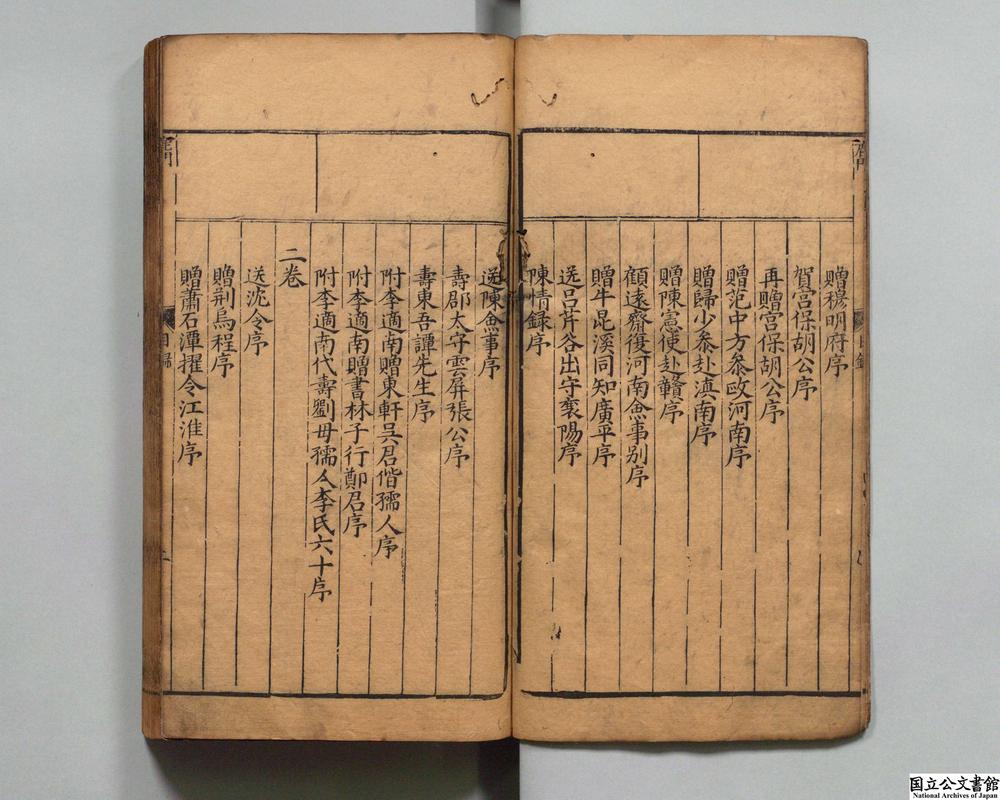 贈穆明府序
賀宫保胡公序
再贈宫保胡公序
贈范中方叅政河南序
贈歸少叅赴滇南序
贈陳憲使赴贛序
顧遠齋復河南僉事别序
贈牛昆溪同知廣平序
送吕芹谷出守襄陽序
陳情録序
送陳僉事序
壽郡太守雲屏張公序
壽東吾譚先生序
附李適南贈東軒吴君偕孺人序
附李適南贈書林子行鄭君序
附李適南代壽劉母孺人李氏六十序
二卷
送沈令序
贈荆烏程序
贈蕭石潭擢令江淮序
目録
国立公文書館
National Archives of Japan